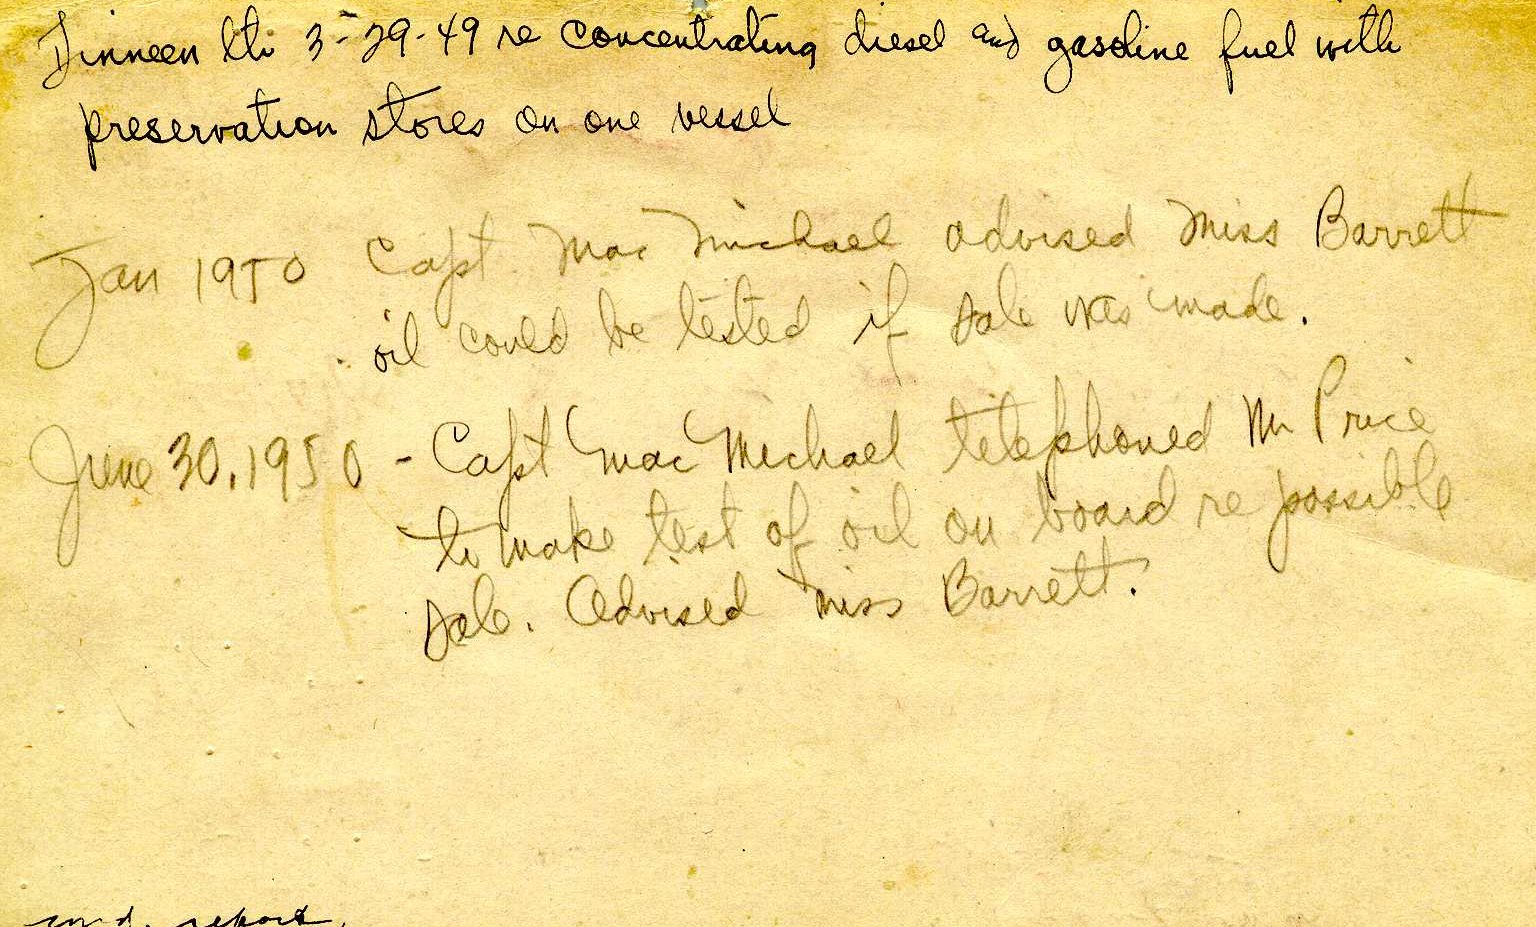 Dinneen ltr 3-29-49 re concentrating diesel and gasoline fuel with
preservation stores on one vessel
Jan 1950 Capt. MacMichael advised Miss Barrett
oil could be tested if sale was made.
June 30, 1950 - Capt MacMichael telephoned Mr Price
to make test of oil on board re possible
sale. Advised Miss Barrett.
report.